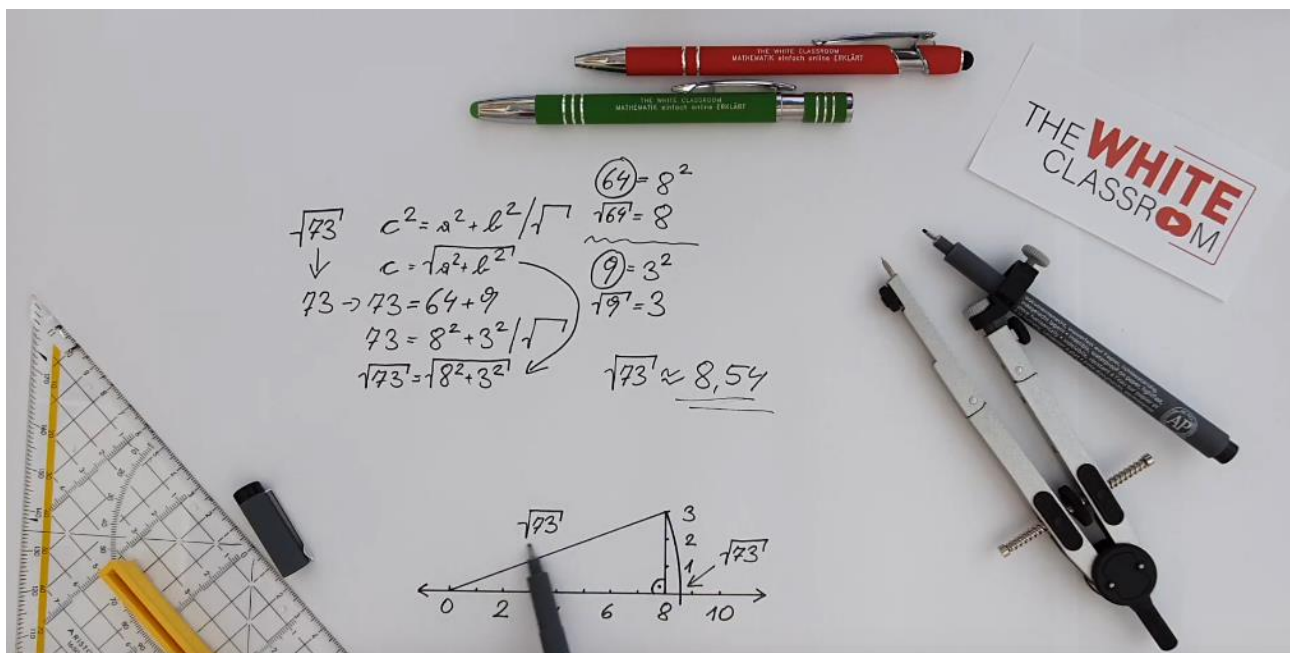 THE WHITE CLASSROOM
MATHEMATIK einfach online ERKLÄRT
THE WHITE CLASSROOM
MATHEMATIK einfach online ERKLÄRT
THE WHITE
CLASSROOM
√73 c² = a² + b² / √
c = √(a² + b²)
73 → 73 = 64 + 9
73 = 8² + 3² / √
√73 = √(8² + 3²)
64 = 8²
√64 = 8
9 = 3²
√9 = 3
√73 ≈ 8,54
√73
3
2
1
√73
0 2 4 6 8 10
AP
ARISTO